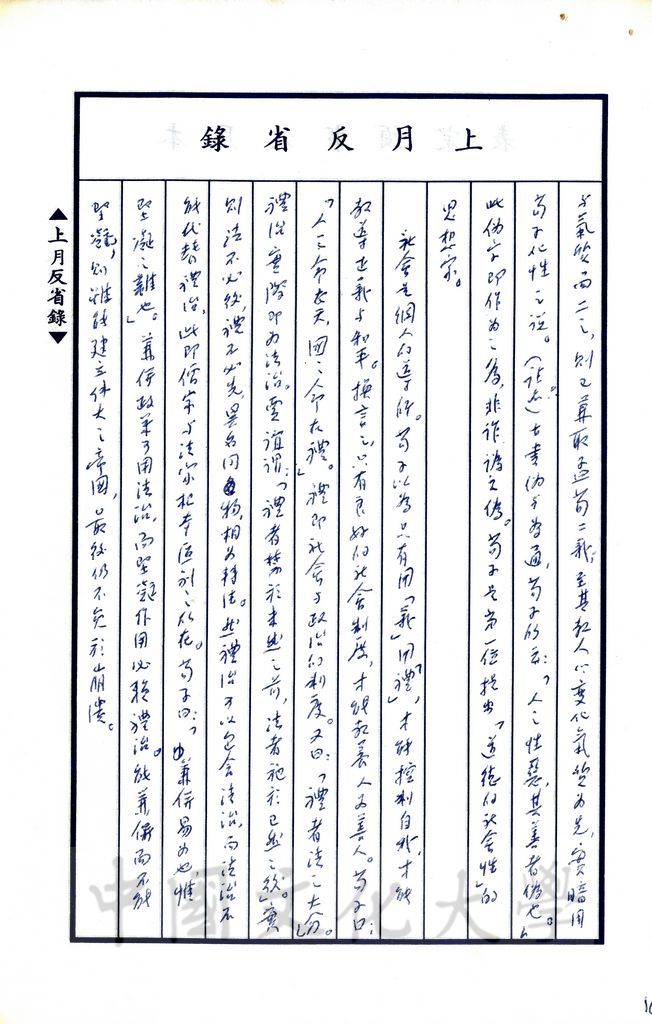 上月反省錄
與氣質而二之，則又兼取孟荀二義，至其教人以變化氣質為先，實暗用
荀子化性之說。（註廿）古書偽與為通，荀子所言：「人之性惡，其善者偽也」
此偽字即作為之為，非詐偽之偽。荀子是第一位提出「道德的社會性」的
思想家。
社會是個人的導師。荀子以為只有用「義」用「禮」，才能控制自然，才能
教導正義與和平。換言之，只有良好的社會制度，才能教養人為善人。荀子曰：
「人之命在天，國之命在禮。」禮即社會與政治的制度。又曰：「禮者法之大分。」
禮治實際即為法治。賈誼謂：「禮者禁於未然之前，法者施於已然之後。」實
則法不必後，禮不必先，異名同物，相為轉注。然禮治可以包含法治，而法治不
能代替禮治，此即儒家與法家根本區別之所在。荀子曰：「兼併易為也，惟
堅凝之難也。」兼併政策可用法治，而堅凝作用必賴禮治。能兼併而不能
堅凝，則雖能建立偉大之帝國，最後仍不免於崩潰。
▲上月反省錄▼
中國文化大學